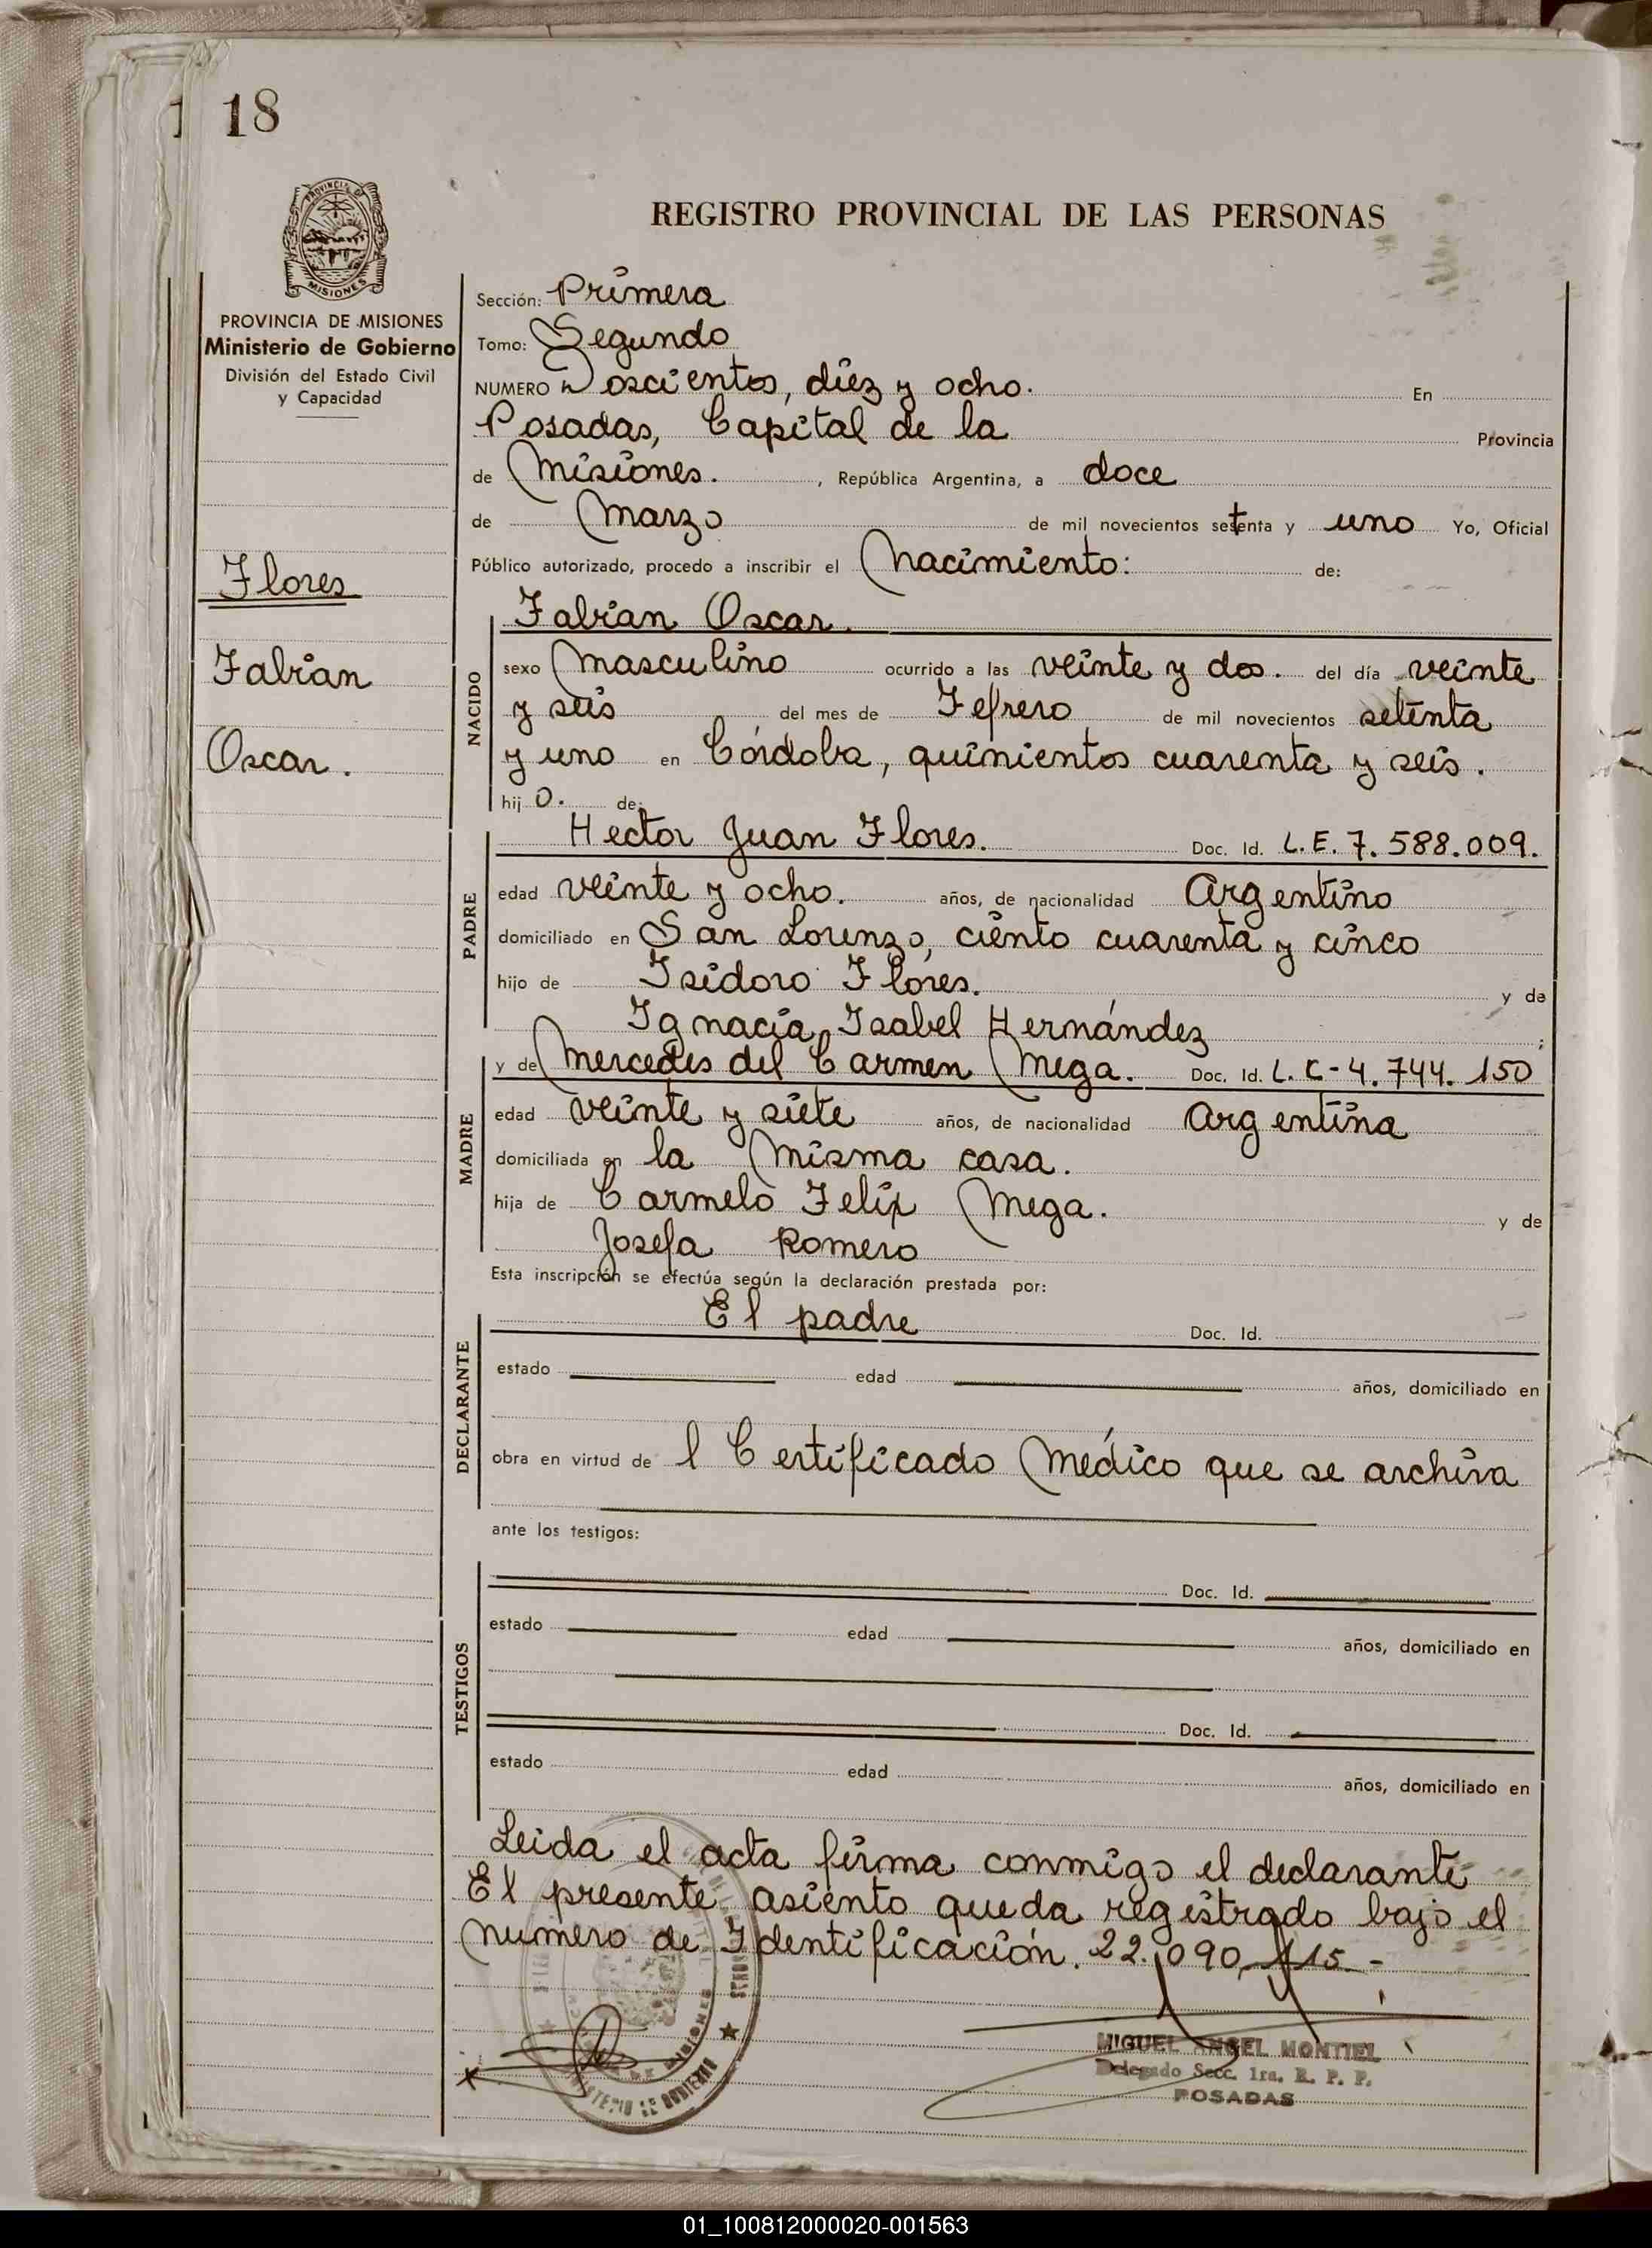 18
REGISTRO PROVINCIAL DE LAS PERSONAS
PROVINCIA DE MISIONES
MISIONES
PROVINCIA DE MISIONES
Ministerio de Gobierno
División del Estado Civil
y Capacidad
Flores
Fabian
Oscar.
Sección: Primera
Tomo: Segundo
NUMERO Doscientos, diez y ocho. En
Posadas, Capital de la Provincia
de Misiones. , República Argentina, a doce
de Marzo de mil novecientos setenta y uno Yo, Oficial
Público autorizado, procedo a inscribir el Nacimiento: de:
NACIDO
Fabian Oscar.
sexo Masculino ocurrido a las veinte y dos. del día veinte
y seis del mes de Febrero de mil novecientos setenta
y uno en Córdoba, quinientos cuarenta y seis.
hij o. de:
PADRE
Hector Juan Flores. Doc. Id. L.E. 7.588.009.
edad veinte y ocho. años, de nacionalidad Argentino
domiciliado en San Lorenzo, ciento cuarenta y cinco
hijo de Isidoro Flores. y de
Ignacia Isabel Hernández ;
MADRE
y de Mercedes del Carmen Mega. Doc. Id. L.C-4.744.150
edad veinte y siete años, de nacionalidad Argentina
domiciliada en la Misma casa.
hija de Carmelo Felix Mega. y de
Josefa Romero
Esta inscripción se efectúa según la declaración prestada por:
DECLARANTE
El padre Doc. Id.
estado edad años, domiciliado en
obra en virtud de l Certificado Médico que se archiva
ante los testigos:
TESTIGOS
Doc. Id.
estado edad años, domiciliado en
Doc. Id.
estado edad años, domiciliado en
Leida el acta firma conmigo el declarante
El presente asiento queda registrado bajo el
Número de Identificación. 22.090.115.-
MIGUEL ANGEL MONTIEL
Delegado Secc. 1ra. R. P. P.
POSADAS
01_100812000020-001563